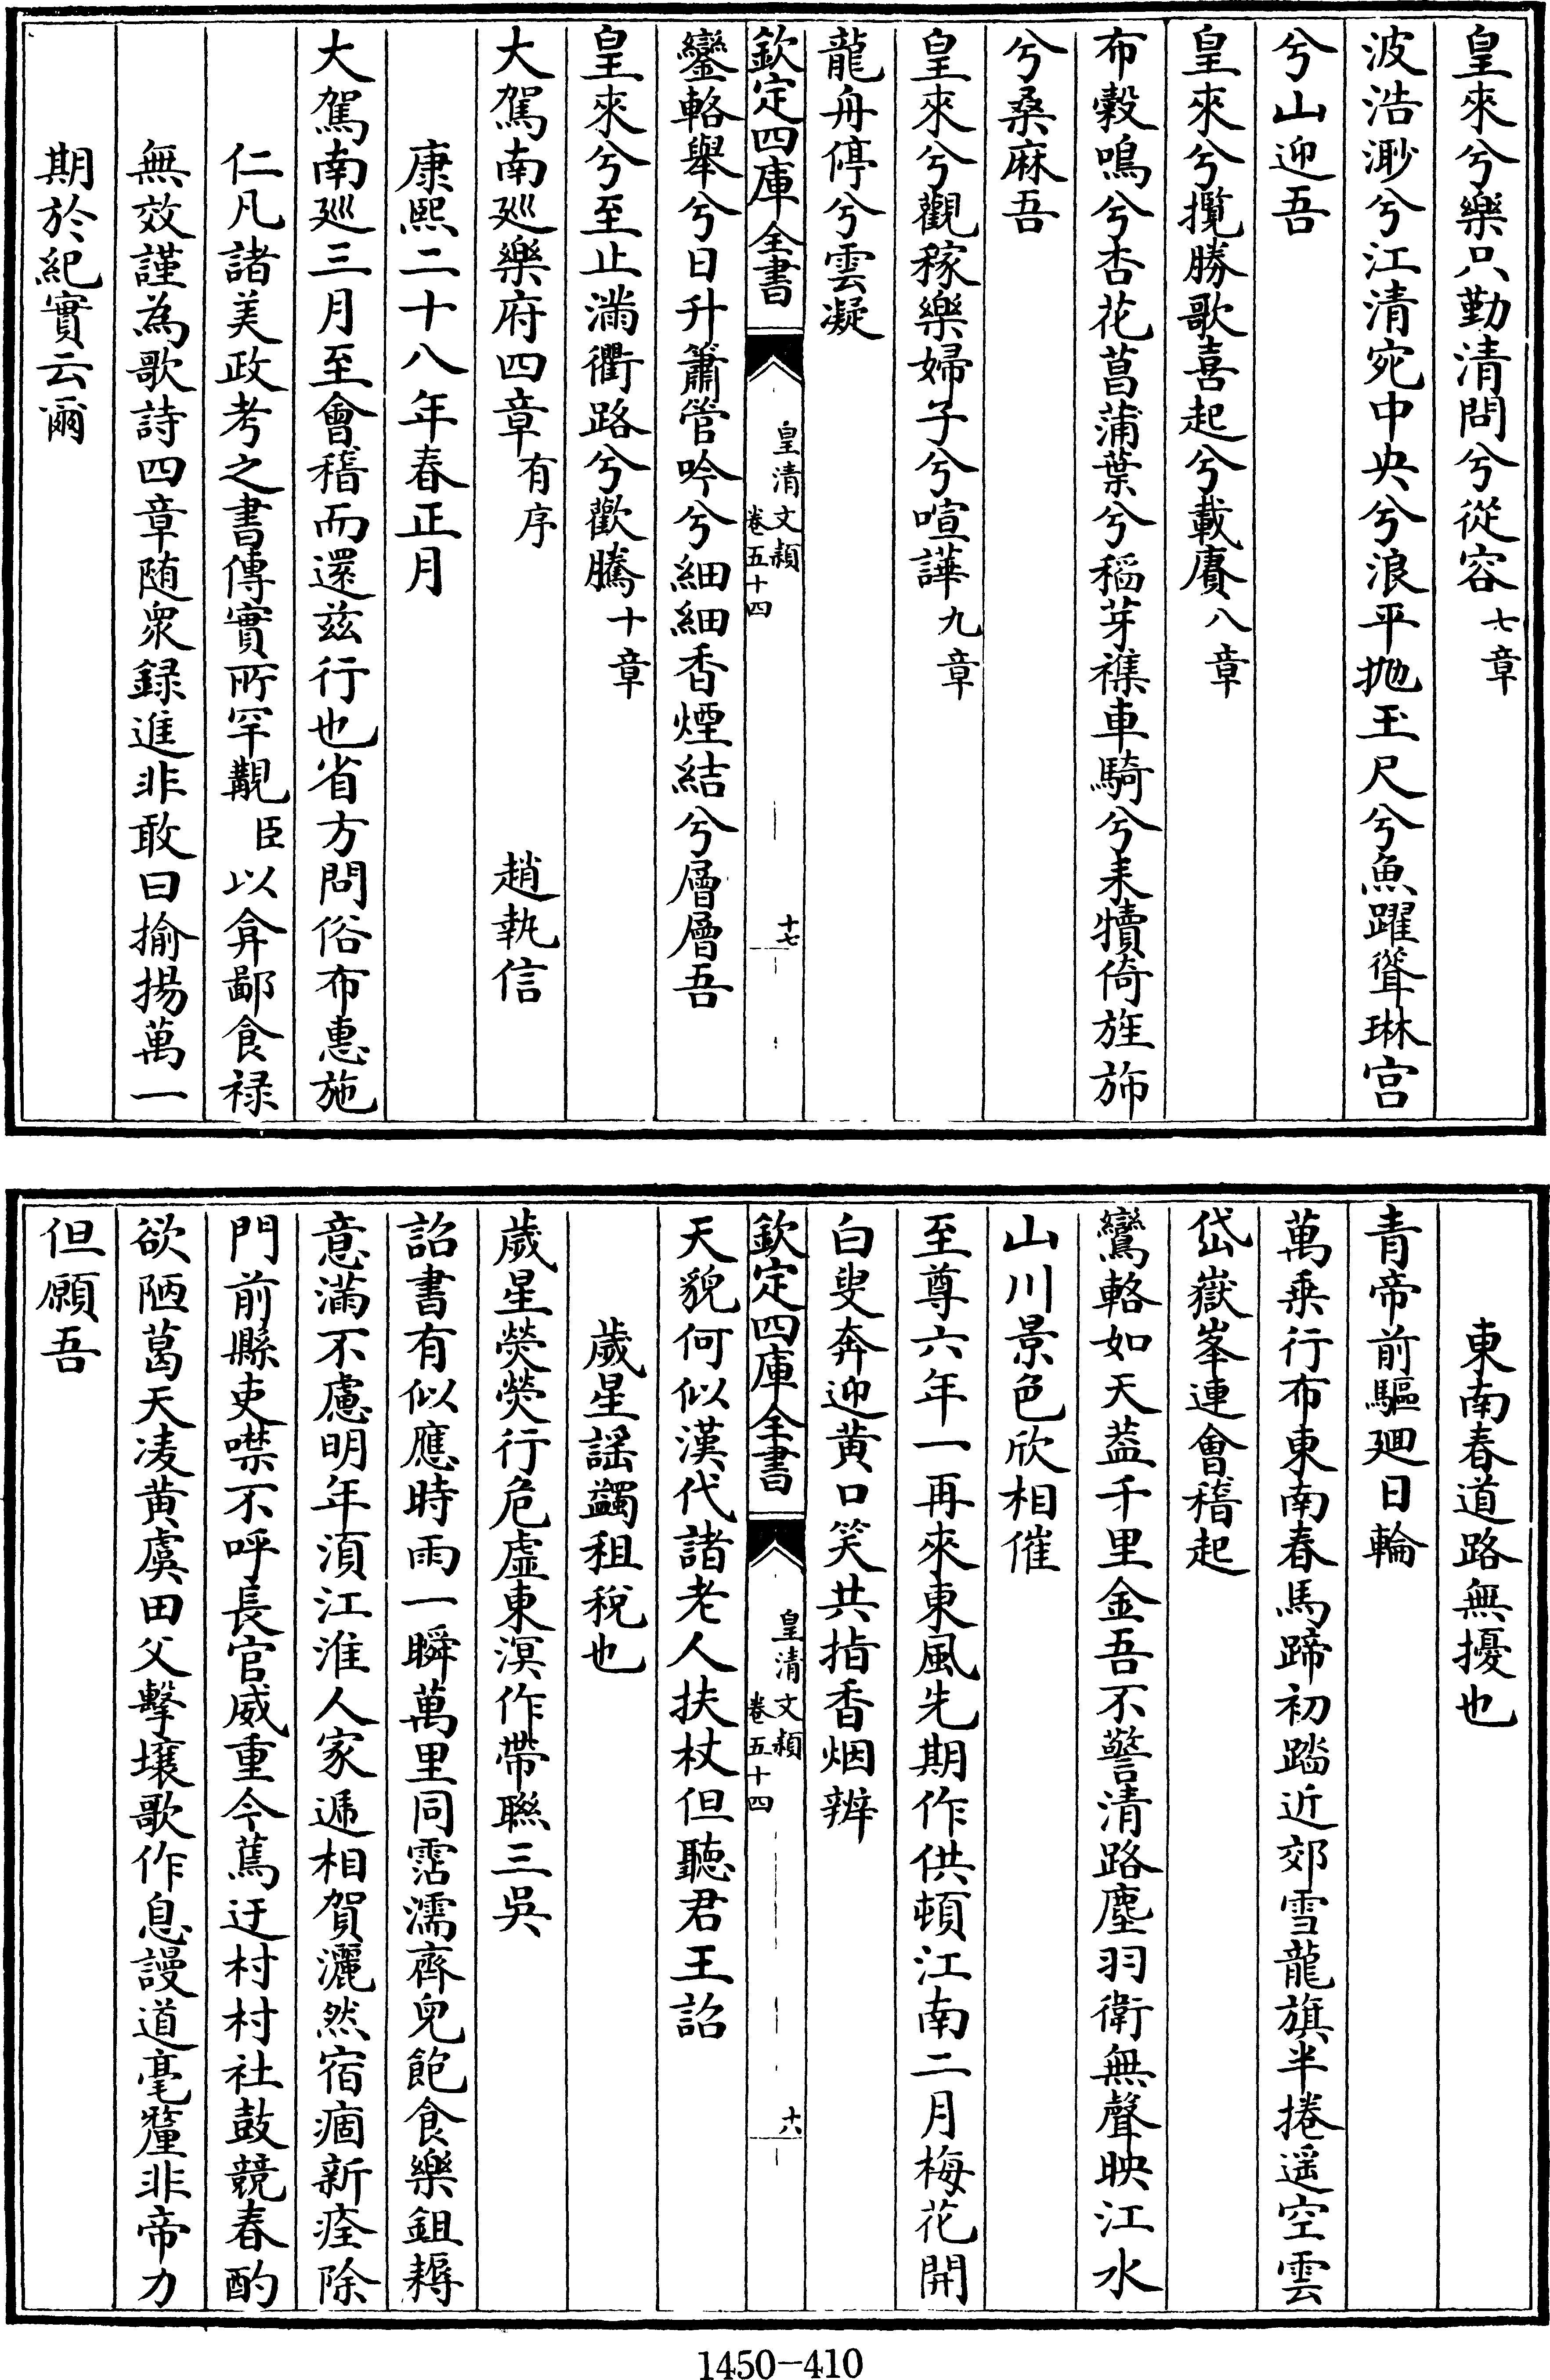 皇來兮樂只勤清問兮從容七章
波浩渺兮江清宛中央兮浪平拋玉尺兮魚躍聳琳宫
兮山迎吾
皇來兮攬勝歌喜起兮載賡八章
布穀鳴兮杏花菖蒲葉兮稻芽襍車騎兮耒犢倚旌旆
兮桑麻吾
皇來兮觀稼樂婦子兮喧譁九章
龍舟停兮雲凝
欽定四庫全書
皇清文穎
卷五十四
十七
鑾輅舉兮日升簫管吟兮細細香煙結兮層層吾
皇來兮至止滿衢路兮歡騰十章
大駕南廵樂府四章有序
趙執信
康熙二十八年春正月
大駕南廵三月至會稽而還兹行也省方問俗布惠施
仁凡諸美政考之書傳實所罕覯臣以弇鄙食禄
無效謹為歌詩四章随衆録進非敢曰揄揚萬一
期於紀實云爾
東南春道路無擾也
青帝前驅廻日輪
萬乗行布東南春馬蹄初踏近郊雪龍旗半捲遥空雲
岱嶽峯連會稽起
鸞輅如天葢千里金吾不警清路塵羽衛無聲映江水
山川景色欣相催
至尊六年一再來東風先期作供頓江南二月梅花開
白叟奔迎黄口笑共指香烟辨
欽定四庫全書
皇清文穎
卷五十四
十八
天貌何似漢代諸老人扶杖但聽君王詔
歲星謡蠲租税也
歲星熒熒行危虚東溟作帶聯三吳
詔書有似應時雨一瞬萬里同霑濡齊兒飽食樂鉏耨
意滿不慮明年湏江淮人家遞相賀灑然宿痼新痊除
門前縣吏噤不呼長官威重今蔿迂村村社鼓競春酌
欲陋葛天凌黄虞田父擊壤歌作息謾道毫釐非帝力
但願吾
1450-410